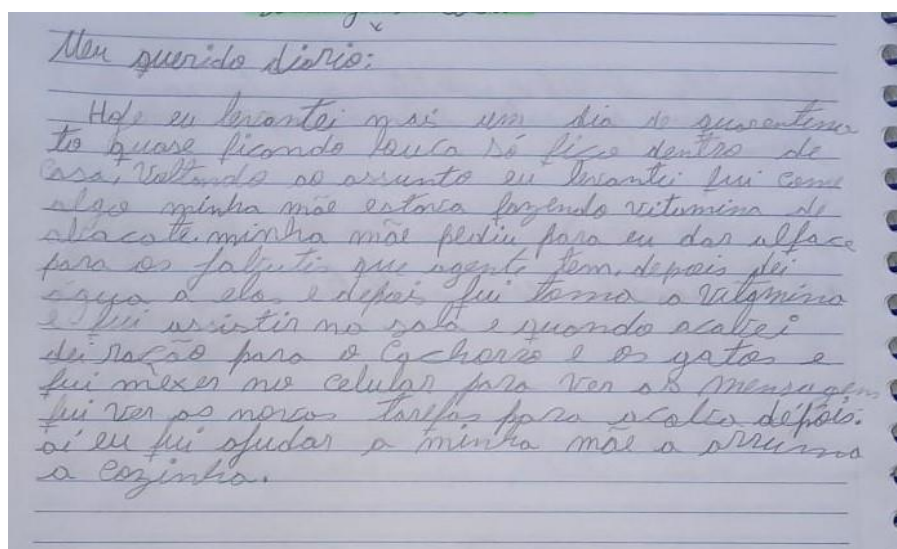 Meu querido diario:
Hoje eu levantei mai um dia de quarentena
to quase ficando louca só fico dentro de
casa, Voltando ao assunto eu levantei fui come
algo minha mãe estava fazendo vitamina de
abacate. minha mãe pediu para eu dar alface
para os jabuti que agente tem, depois dei
água a elas e depois fui toma a vitamina
e fui assistir na sala e quando acabei
dei ração para o Cachorro e os gatos e
fui mexer no celular para ver as mensagem
fui ver as novas tarefas para depois.
ai eu fui ajudar a minha mãe a arruma
a cozinha.